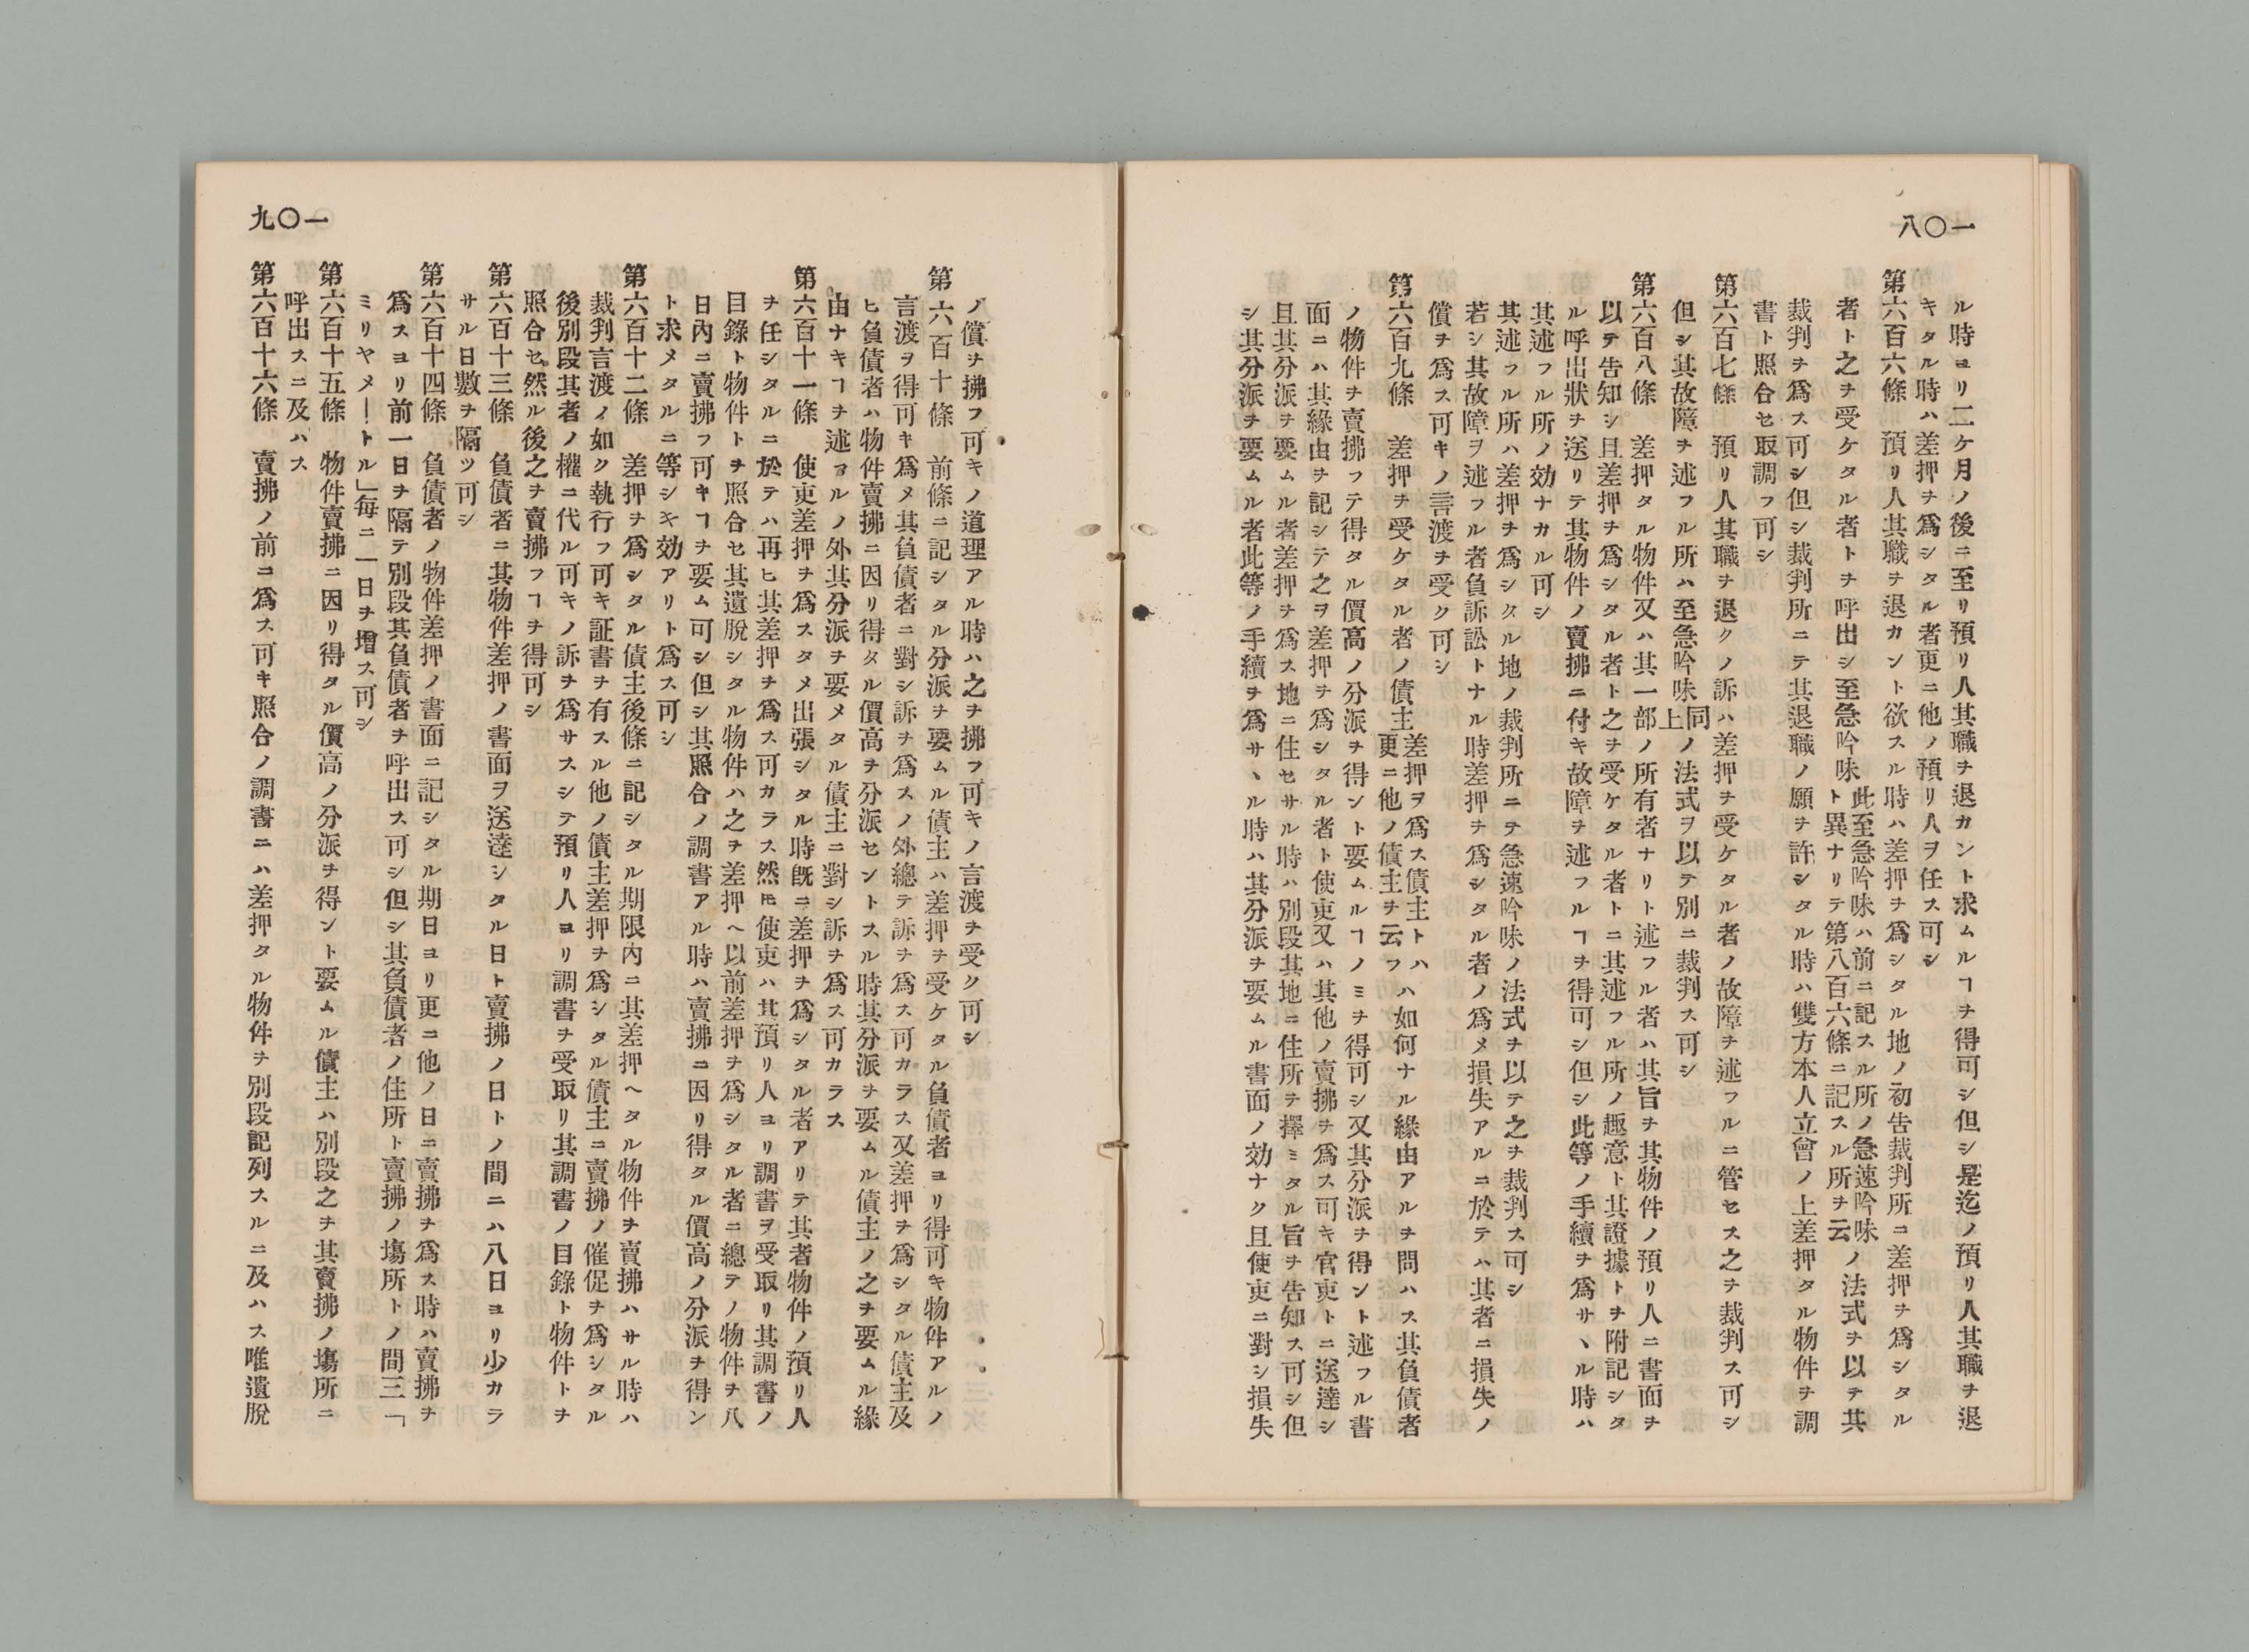 一〇八
ル時ヨリ二ケ月ノ後ニ至リ預リ人其職ヲ退カント求ムルヿヲ得可シ但シ是迄ノ預リ人其職ヲ退
キタル時ハ差押ヲ爲シタル者更ニ他ノ預リ人ヲ任ス可シ
第六百六條 預リ人其職ヲ退カント欲スル時ハ差押ヲ爲シタル地ノ初告裁判所ニ差押ヲ爲シタル
者ト之ヲ受ケタル者トヲ呼出シ至急吟味此至急吟味ハ前ニ記スル所ノ急速吟味ト異ナリテ第八百六條ニ記スル所ヲ云ノ法式ヲ以テ其
裁判ヲ爲ス可シ但シ裁判所ニテ其退職ノ願ヲ許シタル時ハ雙方本人立會ノ上差押タル物件ヲ調
書ト照合セ取調フ可シ
第六百七條 預リ人其職ヲ退クノ訴ハ差押ヲ受ケタル者ノ故障ヲ述フルニ管セス之ヲ裁判ス可シ
但シ其故障ヲ述フル所ハ至急吟味同上ノ法式ヲ以テ別ニ裁判ス可シ
第六百八條 差押タル物件又ハ其一部ノ所有者ナリト述フル者ハ其旨ヲ其物件ノ預リ人ニ書面ヲ
以テ告知シ且差押ヲ爲シタル者ト之ヲ受ケタル者トニ其述フル所ノ趣意ト其證據トヲ附記シタ
ル呼出狀ヲ送リテ其物件ノ賣拂ニ付キ故障ヲ述フルヿヲ得可シ但シ此等ノ手續ヲ爲サヽル時ハ
其述フル所ノ効ナカル可シ
其述フル所ハ差押ヲ爲シタル地ノ裁判所ニテ急速吟味ノ法式ヲ以テ之ヲ裁判ス可シ
若シ其故障ヲ述フル者負訴訟トナル時差押ヲ爲シタル者ノ爲メ損失アルニ於テハ其者ニ損失ノ
償ヲ爲ス可キノ言渡ヲ受ク可シ
第六百九條 差押ヲ受ケタル者ノ債主差押ヲ爲ス債主トハ更ニ他ノ債主ヲ云フハ如何ナル緣由アルヲ問ハス其負債者
ノ物件ヲ賣拂フテ得タル價高ノ分派ヲ得ント要ムルヿノミヲ得可シ又其分派ヲ得ント述フル書
面ニハ其緣由ヲ記シテ之ヲ差押ヲ爲シタル者ト使吏又ハ其他ノ賣拂ヲ爲ス可キ官吏トニ送達シ
且其分派ヲ要ムル者差押ヲ爲ス地ニ住セサル時ハ別段其地ニ住所ヲ擇ミタル旨ヲ告知ス可シ但
シ其分派ヲ要ムル者此等ノ手續ヲ爲サヽル時ハ其分派ヲ要ムル書面ノ効ナク且使吏ニ對シ損失
一〇九
ノ償ヲ拂フ可キノ道理アル時ハ之ヲ拂フ可キノ言渡ヲ受ク可シ
第六百十條 前條ニ記シタル分派ヲ要ムル債主ハ差押ヲ受ケタル負債者ヨリ得可キ物件アルノ
言渡ヲ得可キ爲メ其負債者ニ對シ訴ヲ爲スノ外總テ訴ヲ爲ス可カラス又差押ヲ爲シタル債主及
ヒ負債者ハ物件賣拂ニ因リ得タル價高ヲ分派セントスル時其分派ヲ要ムル債主ノ之ヲ要ムル緣
由ナキヿヲ述ヲルノ外其分派ヲ要メタル債主ニ對シ訴ヲ爲ス可カラス
第六百十一條 使吏差押ヲ爲スタメ出張シタル時旣ニ差押ヲ爲シタル者アリテ其者物件ノ預リ人
ヲ任シタルニ於テハ再ヒ其差押ヲ爲ス可カラス然𪜈使吏ハ其預リ人ヨリ調書ヲ受取リ其調書ノ
目錄ト物件トヲ照合セ其遺脫シタル物件ハ之ヲ差押ヘ以前差押ヲ爲シタル者ニ總テノ物件ヲ八
日內ニ賣拂フ可キヿヲ要ム可シ但シ其照合ノ調書アル時ハ賣拂ニ因リ得タル價高ノ分派ヲ得ン
ト求メタルニ等シキ効アリト爲ス可シ
第六百十二條 差押ヲ爲シタル債主後條ニ記シタル期限內ニ其差押ヘタル物件ヲ賣拂ハサル時ハ
裁判言渡ノ如ク執行フ可キ証書ヲ有スル他ノ債主差押ヲ爲シタル債主ニ賣拂ノ催促ヲ爲シタル
後別段其者ノ權ニ代ル可キノ訴ヲ爲サスシテ預リ人ヨリ調書ヲ受取リ其調書ノ目錄ト物件トヲ
照合セ然ル後之ヲ賣拂フヿヲ得可シ
第六百十三條 負債者ニ其物件差押ノ書面ヲ送達シタル日ト賣拂ノ日トノ間ニハ八日ヨリ少カラ
サル日數ヲ隔ツ可シ
第六百十四條 負債者ノ物件差押ノ書面ニ記シタル期日ヨリ更ニ他ノ日ニ賣拂ヲ爲ス時ハ賣拂ヲ
爲スヨリ前一日ヲ隔テ別段其負債者ヲ呼出ス可シ但シ其負債者ノ住所ト賣拂ノ塲所トノ間三「
ミリヤメートル」每ニ一日ヲ增ス可シ
第六百十五條 物件賣拂ニ因リ得タル價高ノ分派ヲ得ント要ムル債主ハ別段之ヲ其賣拂ノ塲所ニ
呼出スニ及ハス
第六百十六條 賣拂ノ前ニ爲ス可キ照合ノ調書ニハ差押タル物件ヲ別段記列スルニ及ハス唯遺脫